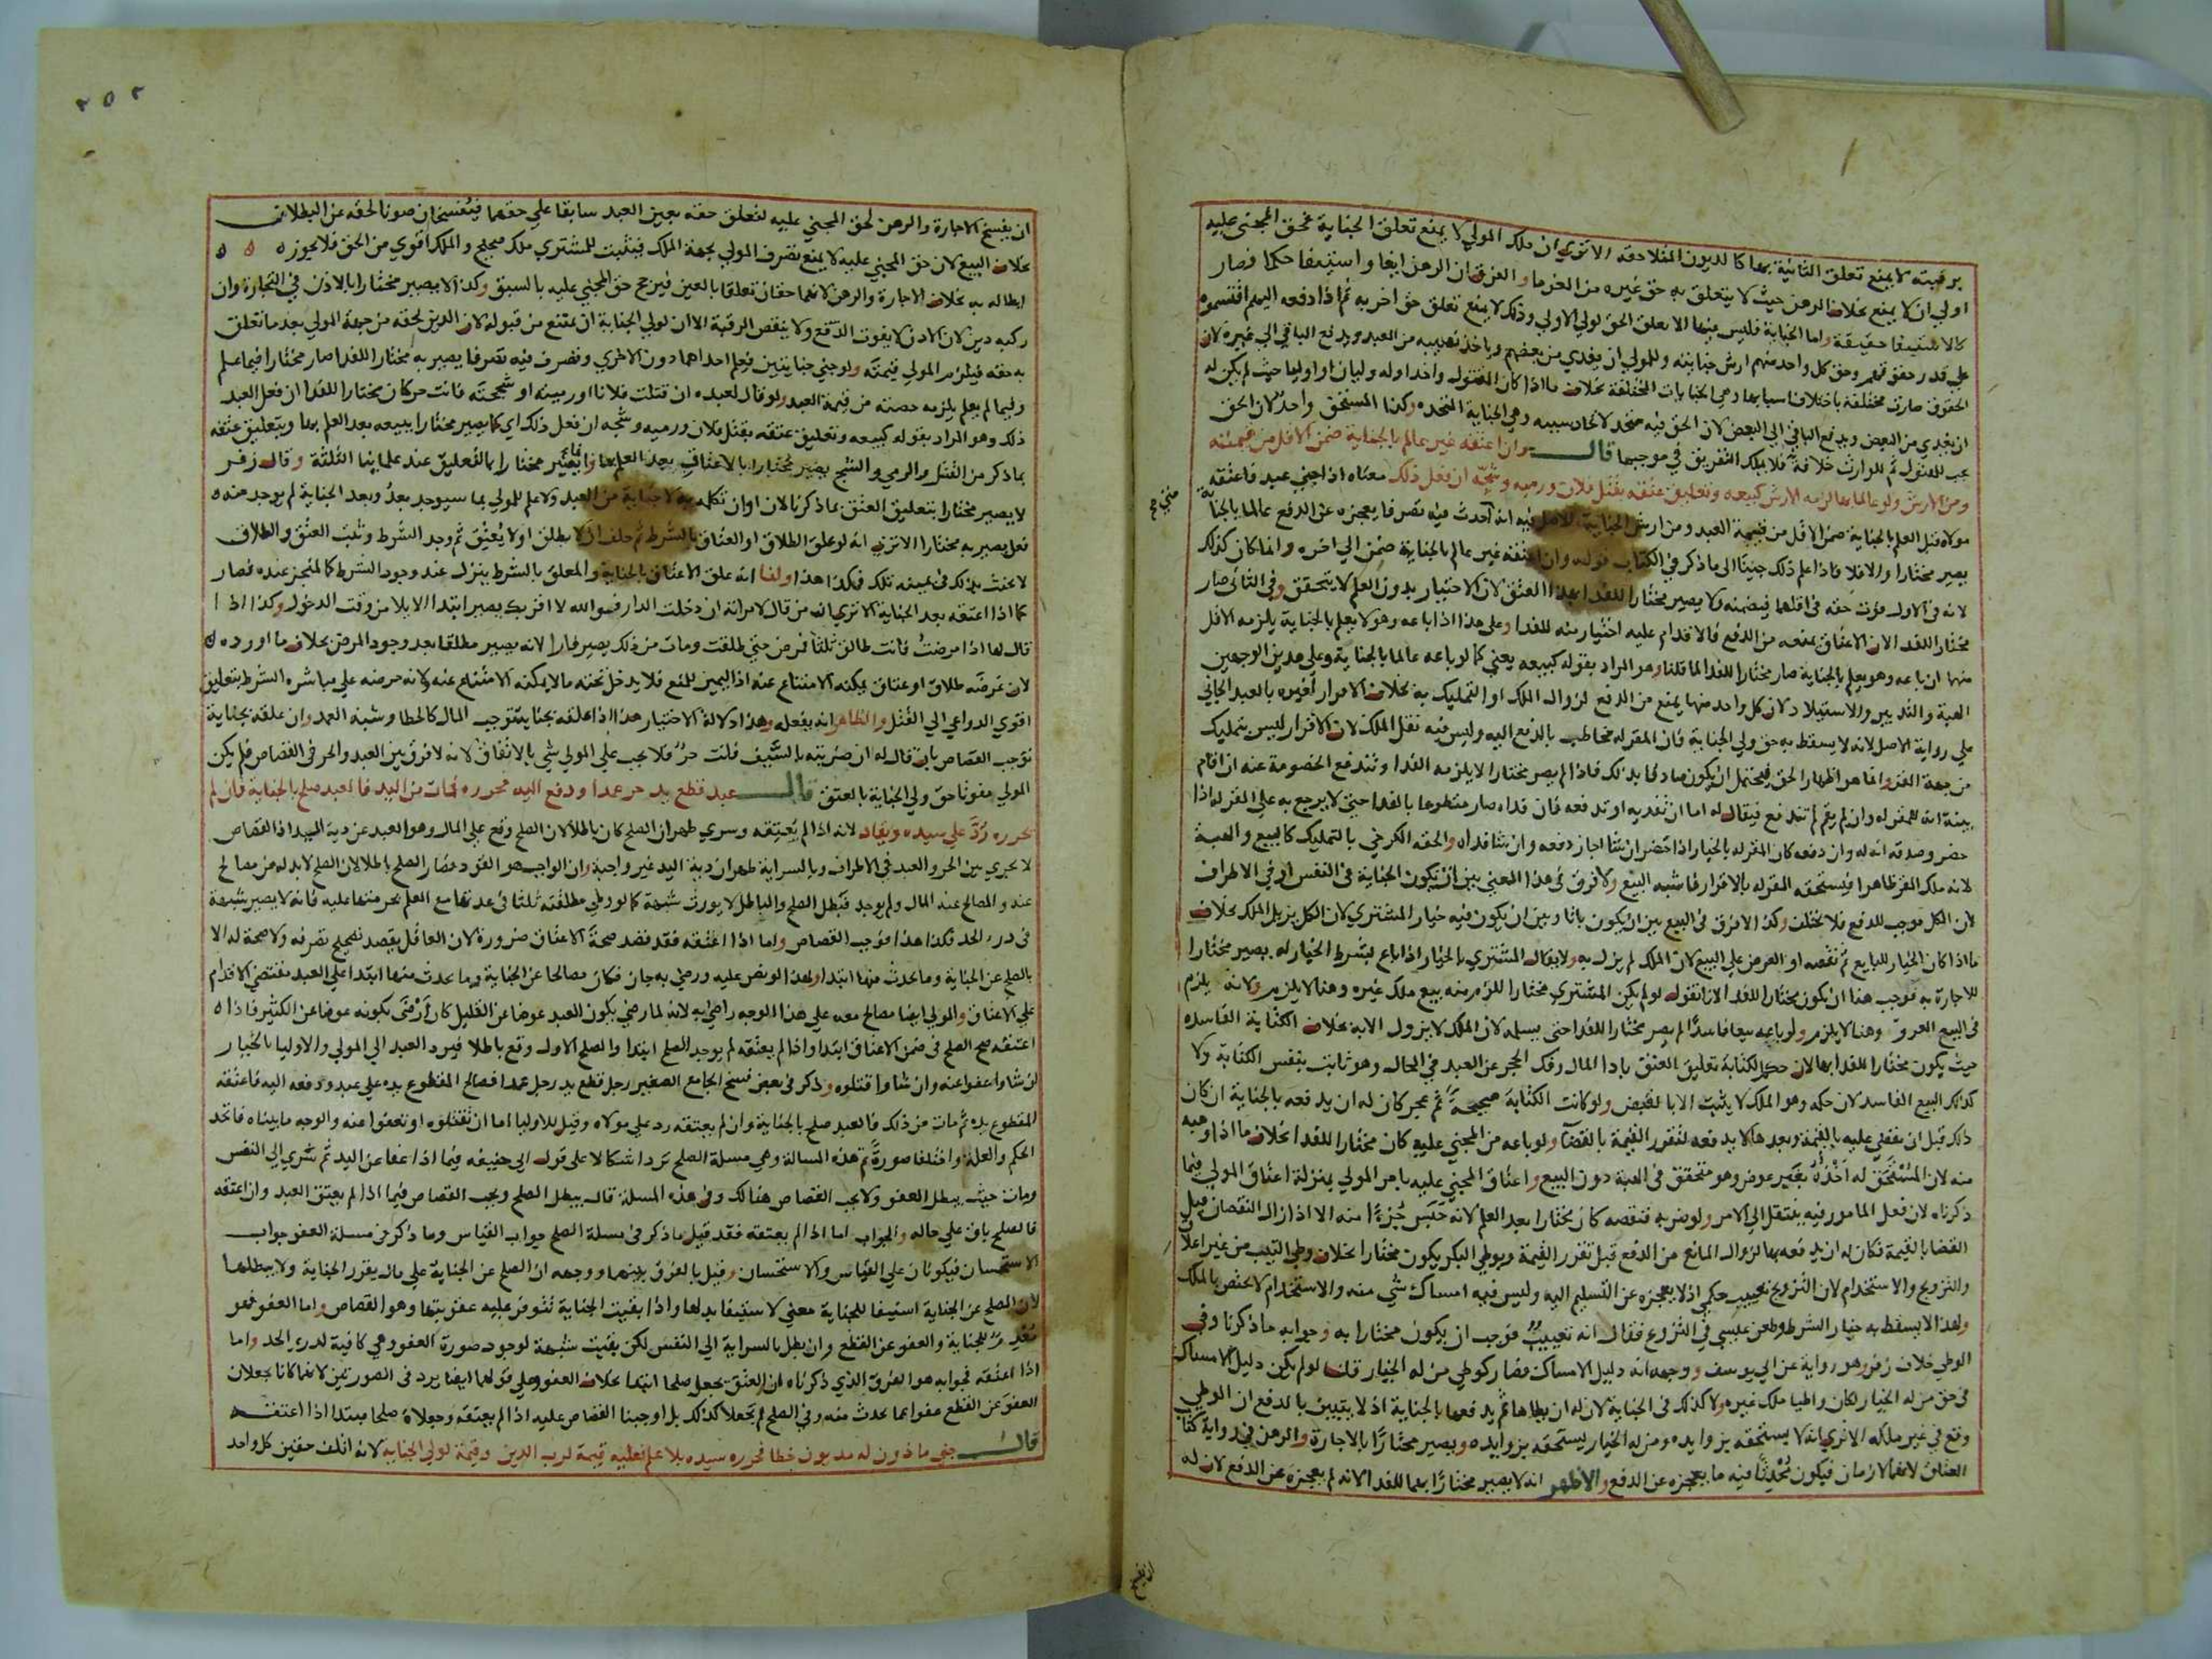 برقبته لا يمنع تعلق الثانية بها كالديون المتلاحقة الا ترى ان ملك المولى لا يمنع تعلق الجناية فحق المجني عليه
اولى ان لا يمنع بخلاف الرهن حيث لا يتعلق به حق غيره من الغرما والفرق ان الرهن ايفا واستيفا حكما فصار
كالاستيفا حقيقة واما الجناية فليس فيها الا تعلق الحق لولي الاولى وذلك لا يمنع تعلق حق اخر به ثم اذا دفعه اليهم اقتسموه
علي قدر حقوقهم وحق كل واحد منهم ارش جنايته وللمولي ان يفدي من بعضهم وياخذ نصيبه من العبد ويدفع الباقي الي غيره لان
الحقوق صارت مختلفة باختلاف اسبابها وهي الجنايات المختلفة بخلاف ما اذا كان المقتول واحدا وله وليان او اوليا حيث لم يكن له
ان يفدي من البعض ويدفع الباقي الى البعض لان الحق فيه متحد لاتحاد سببه وهي الجناية المتحدة وكذا المستحق واحد لان الحق
يجب للمقتول ثم للوارث خلافة فلا يملك التفريق في موجبها قال وان اعتقه غير عالم بالجناية ضمن الاقل من قيمته
ومن الارش ولو عالما بها لزمه الارش كبيعه وتعليق عتقه بقتل فلان ورميه وشجه ان فعل ذلك معناه اذا جني عبد فاعتقه
مولاه قبل العلم بالجناية ضمن الاقل من قيمة العبد ومن ارش الجناية فيه انه احدث فيه تصرفا يعجزه عن الدفع عالما بالجناية
يصير مختارا والا فلا فاذا علم ذلك جينا الى ما ذكر في الكتاب قوله وان اعتقه غير عالم بالجناية ضمن الي اخره وانما كان كذلك
لانه في الاول فوت حقه في اقلهما فيضمنه ولا يصير مختارا للفدا بهذا العتق لان الاختيار بدون العلم لا يتحقق وفي الثاني صار
مختارا للفدا لان الاعتاق يمنعه من الدفع فالاقدام عليه اختيار منه للفدا وعلى هذا اذا باعه وهو لا يعلم بالجناية يلزمه الاقل
منهما ان باعه وهو يعلم بالجناية صار مختارا للفدا لما قلنا وهو المراد بقوله كبيعه يعني كما لو باعه عالما بالجناية وعلى هذين الوجهين
الهبة والتدبير والاستيلاد لان كل واحد منها يمنع من الدفع لزوال الملك او التمليك به بخلاف الاقرار لغيره بالعبد الجاني
علي رواية الاصل لانه لا يسقط به حق ولي الجناية فان المقر له مخاطب بالدفع اليه وليس فيه نقل الملك لان الاقرار ليس بتمليك
من جهة المقر وانما هو اظهار الحق فيحتمل ان يكون صادقا بذلك فاذا لم يصر مختارا لا يلزمه الفدا وتندفع الخصومة عنه ان اقام
بينة انه للمقر له وان لم يقم لم تندفع فيقال له اما ان تفديه او تدفعه فان فداه صار متطوعا بالفدا حتى لا يرجع به علي المقر له اذا
حضر وصدقه انه له وان دفعه كان المقر له بالخيار اذا حضر ان شا اجاز دفعه وان شا فداه والحقه الكرخي بالتمليك كالبيع والهبة
لانه ملك المقر ظاهرا فيستحقه المقر له بالاقرار فاشبه البيع ولا فرق في هذا المعني بين ان تكون الجناية في النفس او في الاطراف
لان الكل موجب للدفع فلا يختلف وكذا لا فرق في البيع بين ان يكون باتا وبين ان يكون فيه خيار المشتري لان الكل يزيل الملك بخلاف
ما اذا كان الخيار للبايع ثم نقضه او العرض علي البيع لان الملك لم يزل به ولا يقال المشتري بالخيار اذا باع بشرط الخيار له يصير مختارا
للاجازة به فوجب هنا ان يكون مختارا للفدا لانا نقول لو لم يكن المشتري مختارا للزم منه بيع ملك غيره وهنا لا يلزم ولانه يلزم
في البيع الغرور وهنا لا يلزم ولو باعه بيعا فاسدا لم يصر مختارا للفدا حتى يسلمه لان الملك لا يزول الا به بخلاف الكتابة الفاسدة
حيث يكون مختارا للفدا بها لان حكم الكتابة تعليق العتق بادا المال وفك الحجر عن العبد في الحال وهو ثابت بنفس الكتابة ولا
كذلك البيع الفاسد لان حكمه وهو الملك لا يثبت الا بالقبض ولو كانت الكتابة صحيحة ثم عجز كان له ان يدفعه بالجناية ان كان
ذلك قبل ان يقضي عليه بالقيمة وبعدها لا يدفعه لتقرر القيمة بالقضا ولو باعه من المجني عليه كان مختارا للفدا بخلاف ما اذا وهبه
منه لان المستحق له اخذه بغير عوض وهو متحقق في الهبة دون البيع واعتاق المجني عليه بامر المولي بمنزلة اعتاق المولي فيما
ذكرناه لان فعل المامور فيه ينتقل الي الامر ولو ضربه فنقصه كان مختارا بعد العلم لانه حبس جزءا منه الا اذا زال النقصان قبل
القضا بالقيمة فكان له ان يدفعه بها لزوال المانع من الدفع قبل تقرر القيمة وبوطي البكر يكون مختارا بخلاف وطي الثيب من غير اعلاق
والتزويج والاستخدام لان التزويج تعييب حكمي اذ لا يعجزه عن التسليم اليه وليس فيه امساك شي منه والاستخدام لا يختص بالملك
ولهذا لا يسقط به خيار الشرط وطعن عيسي في التزوج فقال انه تعييب فوجب ان يكون مختارا به وجوابه ما ذكرنا وفي
الوطي خلاف زفر وهو رواية عن ابي يوسف ووجهه انه دليل الامساك فصار كوطي من له الخيار قلنا لو لم يكن دليل الامساك
في حق من له الخيار لكان واطيا ملك غيره ولا كذلك في الجناية لان له ان يطاها ثم يدفعها بالجناية اذ لا يتبين بالدفع ان الوطي
وقع في غير ملكه الا تري انه لا يستحقه بزوايده ومن له الخيار يستحقه بزوايده ويصير مختارا بالاجارة والرهن في رواية كتاب
العتاق لانهما لازمان فيكون محدثا فيه ما يعجزه عن الدفع والاظهر انه لا يصير مختارا بهما للفدا لانه لم يعجزه عن الدفع لان له
ان يفسخ
٢٥٢
ان يفسخ الاجارة والرهن لحق المجني عليه لتعلق حقه بعين العبد سابقا علي حقهما فيفسخان صونا لحقه عن البطلان
بخلاف البيع لان حق المجني عليه لا يمنع تصرف المولي بجهة الملك فيثبت للمشتري ملك صحيح والملك اقوي من الحق فلا يجوز
ابطاله به بخلاف الاجارة والرهن لانهما حقان تعلقا بالعين فيرجح حق المجني عليه بالسبق وكذا لا يصير مختارا بالاذن في التجارة وان
ركبه دين لان الاذن لا يفوت الدفع ولا ينقص الرقبة الا ان لولي الجناية ان يمتنع من قبوله لان الدين لحقه من جهة المولي بعد ما تعلق
به حقه فيلزم المولي قيمته ولو جني جنايتين فعلم احداهما دون الاخري وتصرف فيه تصرفا يصير به مختارا للفدا صار مختارا فيما علم
وفيما لم يعلم يلزمه حصته من قيمة العبد ولو قال لعبده ان قتلت فلانا او رميته او شججته فانت حر كان مختارا للفدا ان فعل العبد
ذلك وهو المراد بقوله كبيعه وتعليق عتقه بقتل فلان ورميه وشجه ان فعل ذلك اي كما يصير مختارا ببيعه بعد العلم بها وبتعليق عتقه
بما ذكر من القتل والرمي والشج يصير مختارا بالاعتاق بعد العلم بها وانما يصير مختارا بالتعليق عند علمائنا الثلثة وقال زفر
لا يصير مختارا بتعليق العتق بما ذكرنا لان اوان تكلمه به لا جناية من العبد ولا علم للمولي بما سيوجد بعد وبعد الجناية لم يوجد منه
فعل يصير به مختارا الا ترى انه لو علق الطلاق او العتاق بالشرط ثم حلف ان لا يطلق او لا يعتق ثم وجد الشرط وثبت العتق والطلاق
لا يحنث بذلك في يمينه تلك فكذا هذا ولنا انه علق الاعتاق بالجناية والمعلق بالشرط ينزل عند وجود الشرط كالمنجز عنده فصار
كما اذا اعتقه بعد الجناية الا تري ان من قال لامراته ان دخلت الدار فوالله لا اقربك يصير ابتدا الايلا من وقت الدخول وكذا اذا
قال لها اذا مرضت فانت طالق ثلثا فمرض حتي طلقت ومات من ذلك يصير فارا لانه يصير مطلقا بعد وجود المرض بخلاف ما اورده
لان غرضه طلاق او عتاق يمكنه الامتناع عنه اذ اليمين للمنع فلا يدخل تحته ما لا يمكنه الامتناع عنه ولانه حرضه علي مباشرة الشرط بتعليق
اقوي الدواعي الي القتل والظاهر انه يفعله وهذا دلالة الاختيار هذا اذا علقه بجناية توجب المال كالخطا وشبه العمد وان علقه بجناية
توجب القصاص بان قال له ان ضربته بالسيف فانت حر فلا يجب علي المولي شي بالاتفاق لانه لا فرق بين العبد والحر في القصاص فلم يكن
المولي مفوتا حق ولي الجناية بالعتق قال عبد قطع يد حر عمدا ودفع اليه فحرره فمات من اليد فالعبد صلح بالجناية فان لم
يحرره رد علي سيده ويقاد لانه اذا لم يعتقه وسري ظهر ان الصلح كان باطلا لان الصلح وقع علي المال وهو العبد عن دية اليد اذ القصاص
لا يجري بين الحر والعبد في الاطراف وبالسراية ظهر ان دية اليد غير واجبة وان الواجب هو القود فصار الصلح باطلا لان الصلح لا بد له من مصالح
عنه والمصالح عنه المال ولم يوجد فبطل الصلح والباطل لا يورث شبهة كما لو وطي مطلقته ثلثا في عدتها مع العلم بحرمتها عليه فانه لا يصير شبهة
في درء الحد فكذا هذا فوجب القصاص واما اذا اعتقه فقد قصد صحة الاعتاق ضرورة لان العاقل يقصد تصحيح تصرفه ولا صحة له الا
بالصلح عن الجناية وما يحدث منها ابتدا ولهذا لو نص عليه ورضي به جاز فكان مصالحا عن الجناية وما يحدث منها ابتدا علي العبد مقتضي الاقدام
علي الاعتاق والمولي ايضا مصالح معه علي هذا الوجه راضي به لانه لما رضي بكون العبد عوضا عن القليل كان ارضى بكونه عوضا عن الكثير فاذا
اعتقه صح الصلح في ضمن الاعتاق ابتدا واذا لم يعتقه لم يوجد الصلح ابتدا والصلح الاول وقع باطلا فيرد العبد الي المولي والاوليا بالخيار
ان شاوا عفوا عنه وان شاوا قتلوه وذكر في بعض نسخ الجامع الصغير رجل قطع يد رجل عمدا فصالح المقطوع يده علي عبد ودفعه اليه فاعتقه
المقطوع يده ثم مات من ذلك فالعبد صلح بالجناية وان لم يعتقه رد علي مولاه وقيل للاوليا اما ان تقتلوه او تعفوا عنه والوجه ما بيناه فاتحد
الحكم والعلة واختلفا صورة ثم هذه المسالة وهي مسلة الصلح ترد اشكالا علي قول ابي حنيفه فيما اذا عفا عن اليد ثم سري الي النفس
ومات حيث يبطل العفو ولا يجب القصاص هنالك وفي هذه المسلة قال يبطل الصلح ويجب القصاص فيما اذا لم يعتق العبد وان اعتقه
فالصلح باق علي حاله والجواب اما اذا لم يعتقه فقد قيل ما ذكر في مسلة الصلح جواب القياس وما ذكر في مسلة العفو جواب
الاستحسان فيكونان علي القياس والاستحسان وقيل بالفرق بينهما ووجهه ان الصلح عن الجناية علي مال يقرر الجناية ولا يبطلها
لان الصلح عن الجناية استيفا للجناية معني لاستيفا بدلها واذا بقيت الجناية تتوفر عليه عقوبتها وهو القصاص واما العفو فهو
معدم للجناية والعفو عن القطع وان بطل بالسراية الي النفس لكن بقيت شبهة لوجود صورة العفو وهي كافية لدري الحد واما
اذا اعتقه فجوابه هو الفرق الذي ذكرناه ان العتق يجعل صلحا ابتدا بخلاف العفو وعلي قولهما ايضا يرد في الصورتين لانهما كانا يجعلان
العفو عن القطع عفوا عما يحدث منه وفي الصلح لم يجعلا كذلك بل اوجبا القصاص عليه اذا لم يعتقه وجعلاه صلحا مبتدا اذا اعتقه
قال جني ماذون له مديون خطا فحرره سيده بلا علم فعليه قيمة لرب الدين وقيمة لولي الجناية لانه اتلف حقين كل واحد